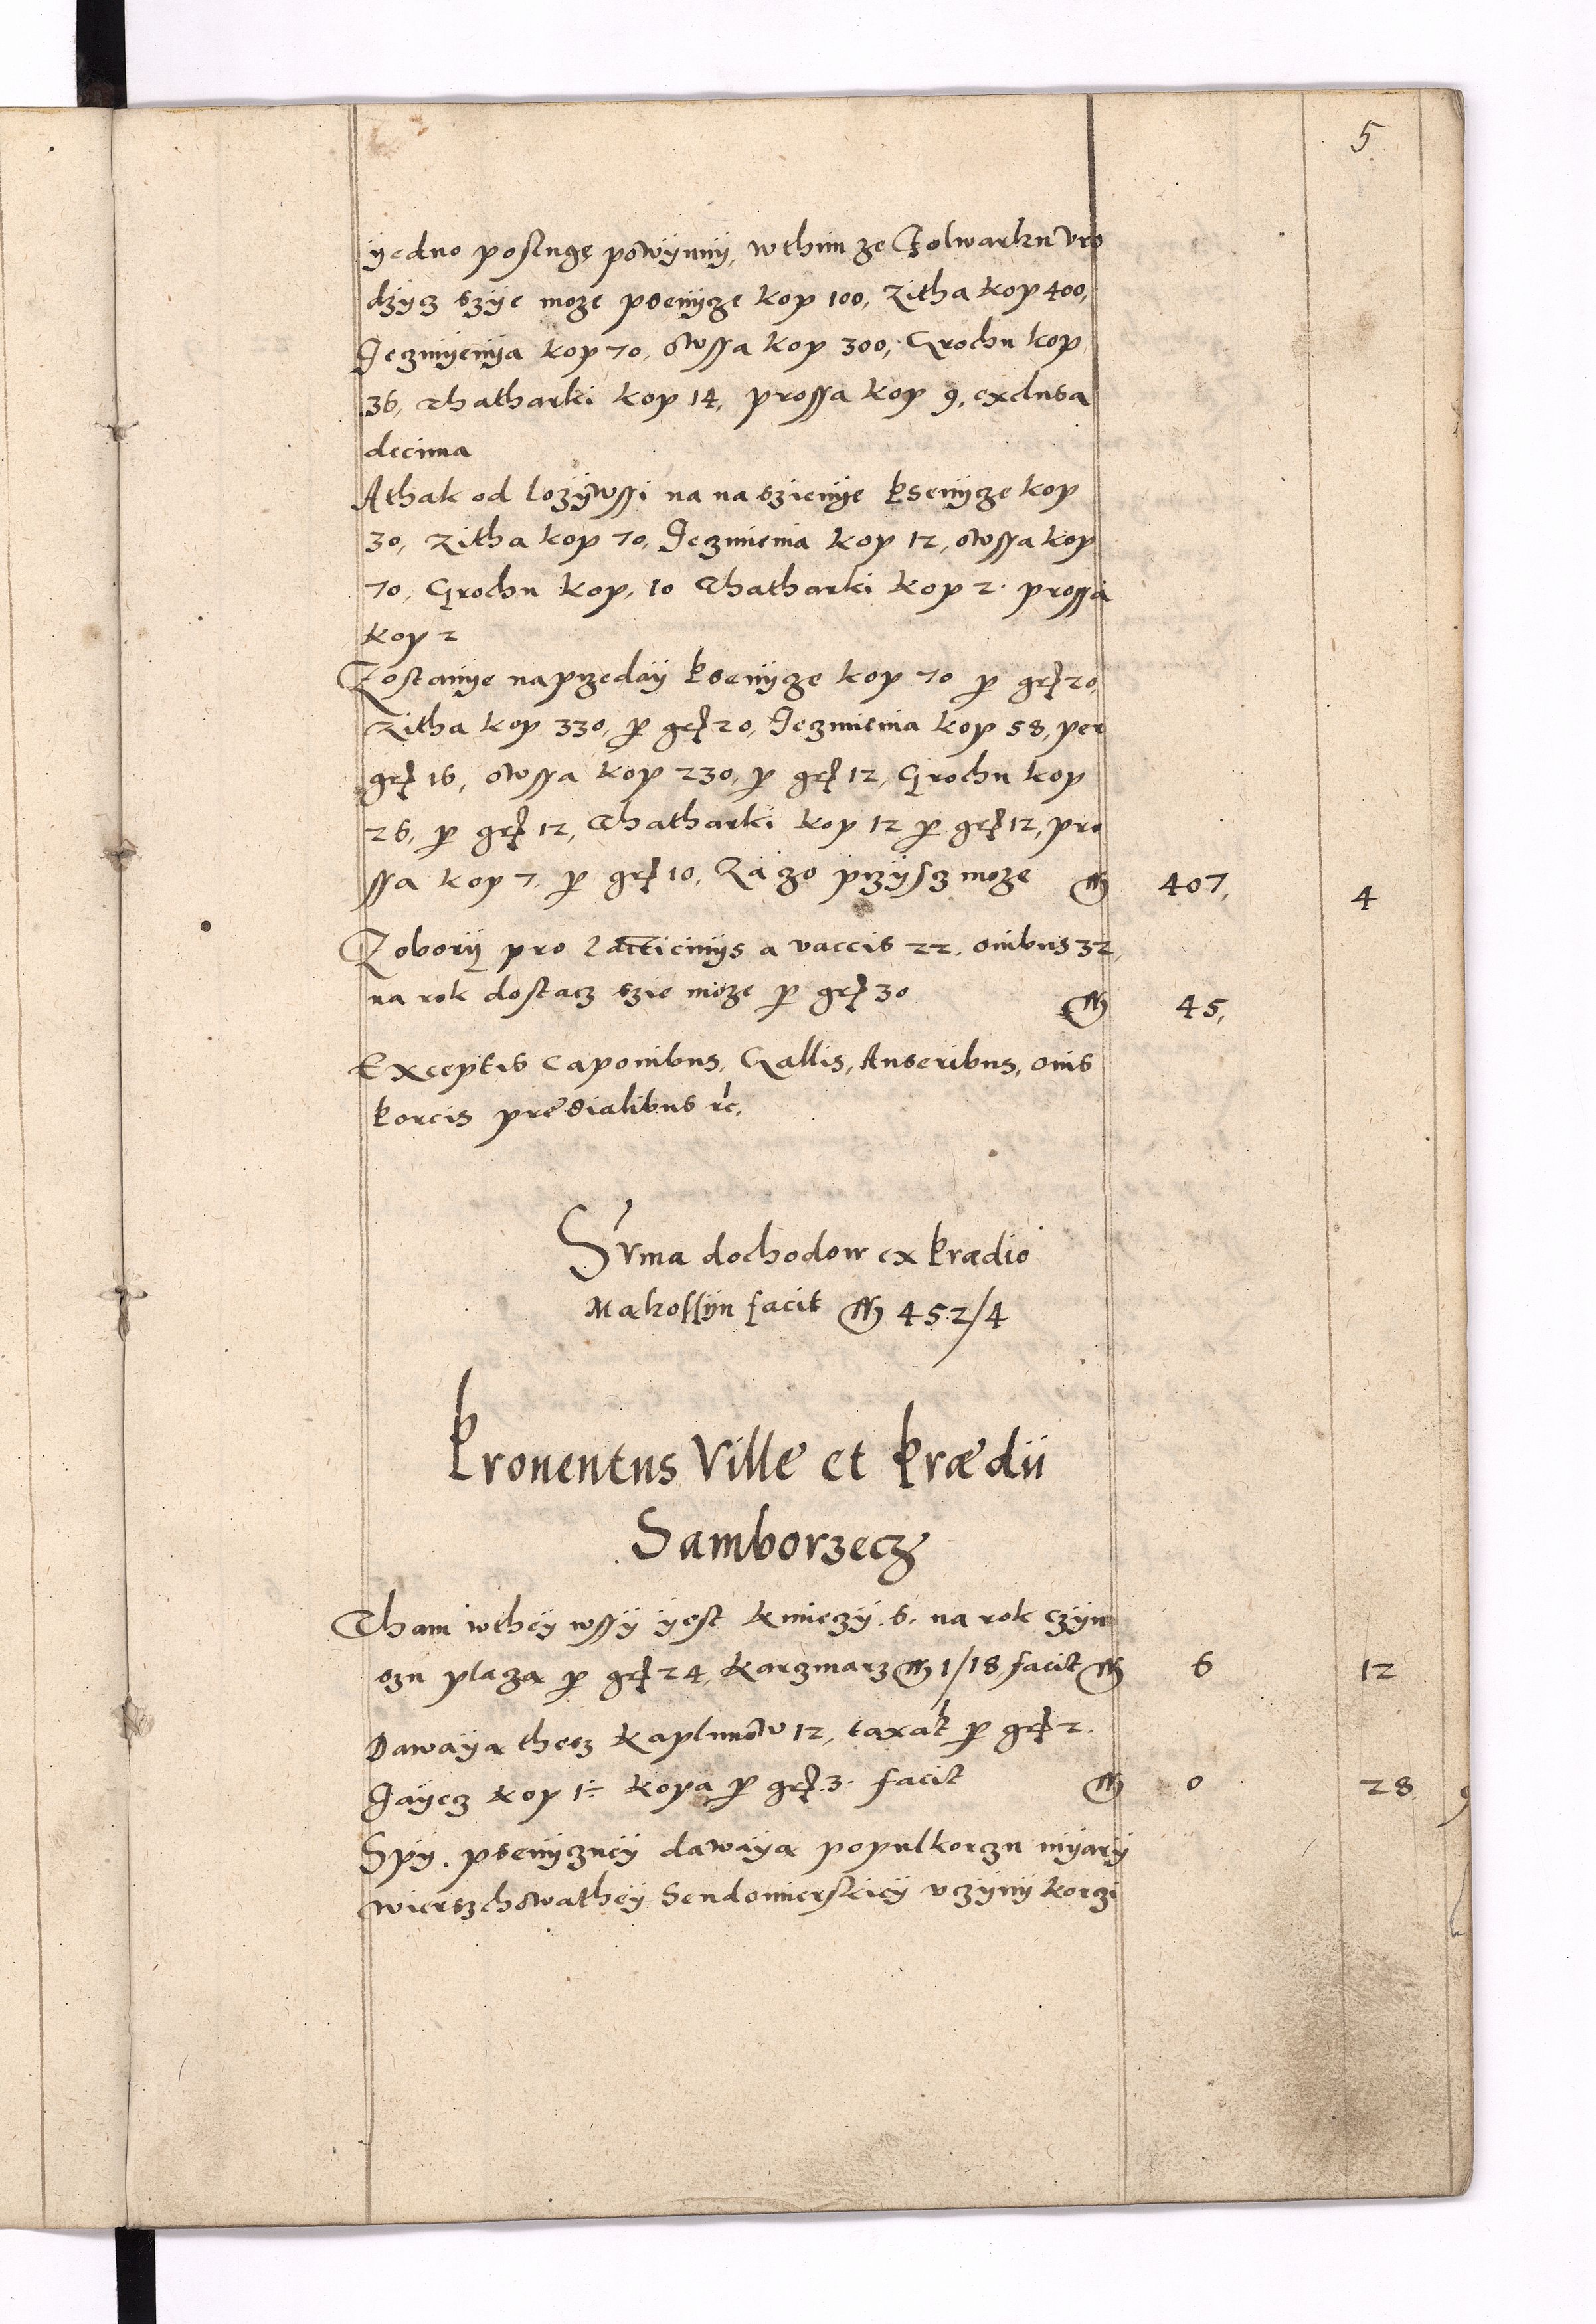 5
yedno poslugę powÿnnÿ, w thim ze Folwarku vro
dzycz szÿe moze psenÿcze kop 100, Zitha kop 400,
Jeczmÿenÿa kop 70, owssa kop 300, Grochu kop
36, thatharki kop 14, prossa kop 9, exclusa
decima
A thak odlozÿwssi na naszienÿe Psenÿcze kop
30, Zitha kop 70, Jeczmienia kop 12, owssa kop
70, Grochu kop, 10 Thatharki kop 2. prossa
kop 2
Zostanÿe naprzedaÿ Psenÿcze kop 70 p gr 20,
Zitha kop 330, p gr 20, Jeczmienia kop 58, per
gr 16, owssa kop 230, p gr 12, Grochu kop
26, p gr 12, Thatharki kop 12 p gr 12, pro
ssa kop 7, p gr 10, Za czo przÿscz moze M 407, 4
Z oborÿ pro lacticinÿs a vaccis 22, ouibus 32,
na rok dostacz szie moze p gr 30 M 45,
Exceptis Caponibus, Gallis, Anseribus, ouis
Porcis predialibus etc,
Suma dochodow ex Prædio
Makossÿn facit M 452/4
Prouentus Ville et Prædii
Samborzecz
Tham w theÿ wssÿ ÿest Kmieczÿ 6. na rok czÿn
szu placza p gr 24, Karczmarz M 1/18 facit M 6 12
Dawaÿa thesz Kaplunow 12, taxat p gr 2.
Jaÿecz kop 1÷ kopa p gr 3. facit M 0 28 9
Spÿ. psenÿczneÿ dawaÿa populkorczu mÿarÿ
wierszchowatheÿ Sendomierskieÿ vczÿnÿ korczi